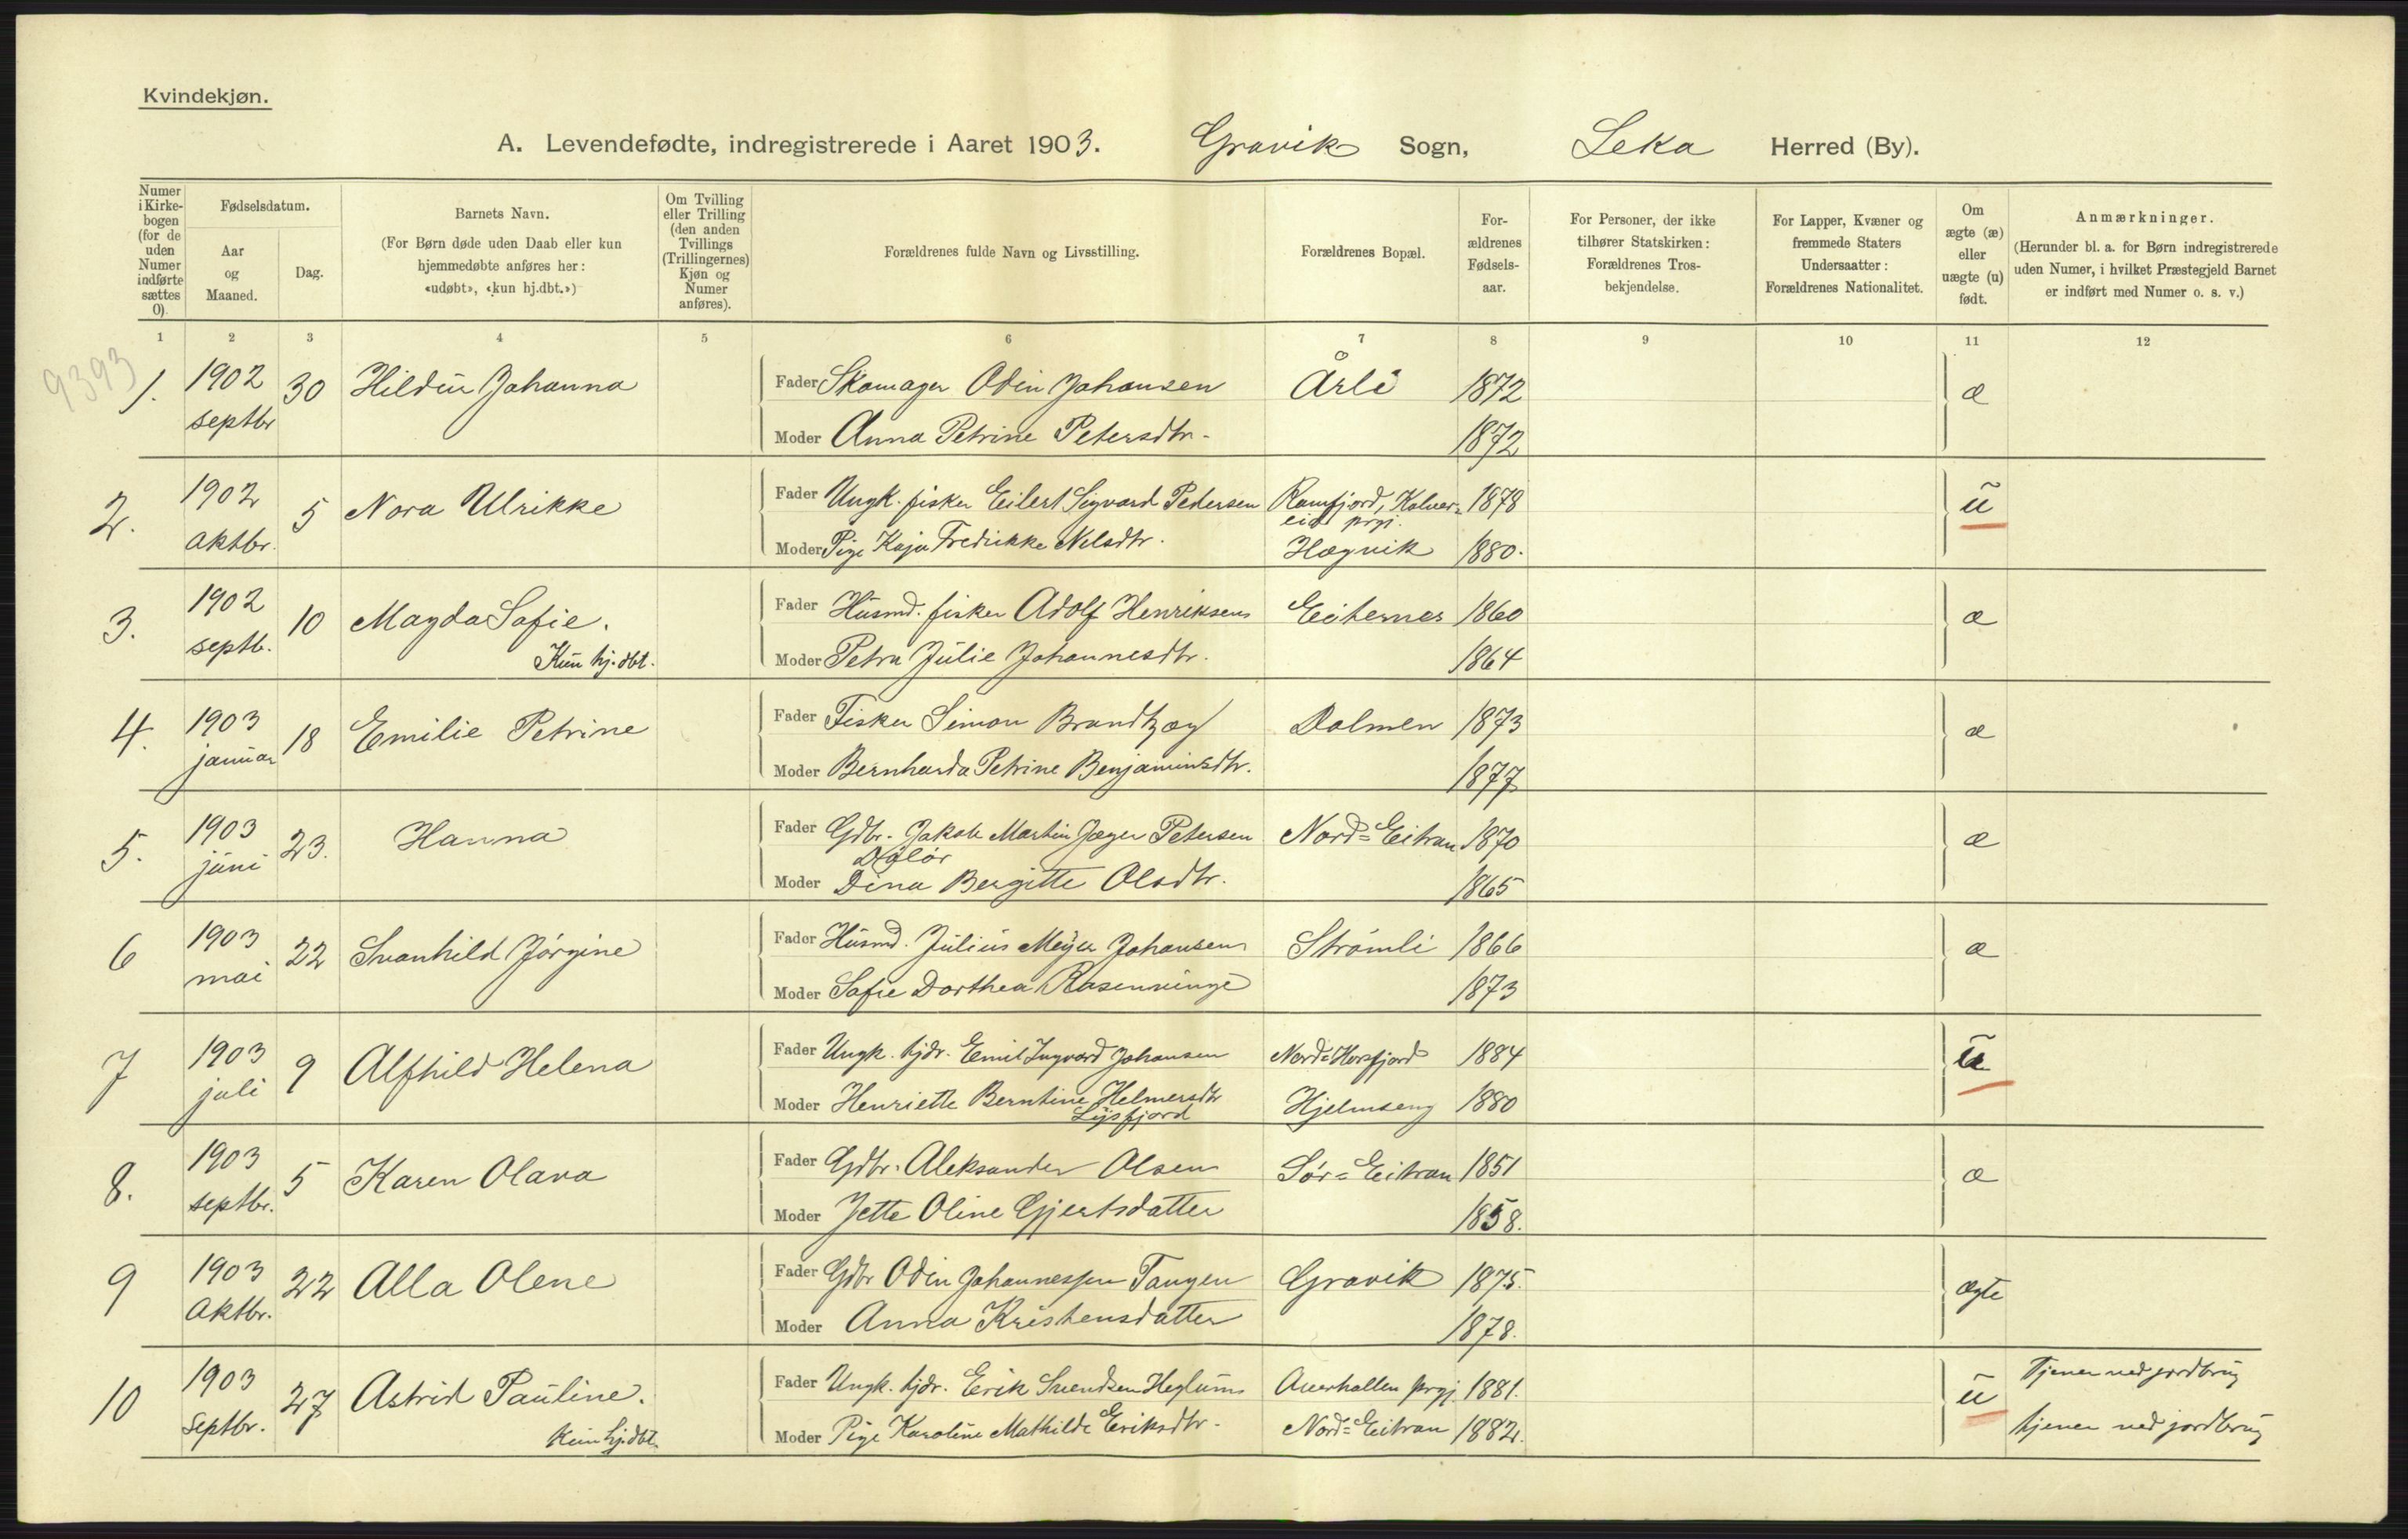 Kvindekjøn.
A. Levendefødte, indregistrerede i Aaret 1903. Gravik Sogn, Leka Herred (By).
Numer i Kirkebogen (for de uden Numer indførte sættes 0).
Fødselsdatum.
Aar og Maaned.
Dag.
Barnets Navn.
(For Børn døde uden Daab eller kun hjemmedøbte anføres her: «udøbt», «kun hj.dbt.»)
Om Tvilling eller Trilling (den anden Tvillings (Trillingernes) Kjøn og Numer anføres).
Forældrenes fulde Navn og Livsstilling.
Forældrenes Bopæl.
Forældrenes Fødselsaar.
For Personer, der ikke tilhører Statskirken: Forældrenes Trosbekjendelse.
For Lapper, Kvæner og fremmede Staters Undersaatter: Forældrenes Nationalitet.
Om ægte (æ) eller uægte (u) født.
Anmærkninger.
(Herunder bl. a. for Børn indregistrerede uden Numer, i hvilket Præstegjeld Barnet er indført med Numer o. s. v.)
1 2 3 4 5 6 7 8 9 10 11 12
9393
1. 1902 septbr 30 Hildur Johanna Fader Skomager Odin Johansen Årli 1872 æ
Moder Anna Petrine Petersdtr. 1872
2. 1902 oktbr. 5 Nora Ulrikke Fader Ungk. fisker Eilert Sigvard Pedersen Ramfjord, Kolvereid prgj. 1878 u
Moder Pige Kaja Fredrikke Nilsdtr. Hægvik 1880.
3. 1902 septb. 10 Magda Sofie. Kun hj.dbt. Fader Husmd. fisker Adolf Henriksen Eiternes 1860 æ
Moder Petra Julie Johannesdtr. 1864
4. 1903 januar 18 Emilie Petrine Fader Fisker Simon Brandtzæg Dolmen 1873 æ
Moder Bernharda Petrine Benjaminsdtr. 1877
5. 1903 juni 23. Hanna Fader Gdbr. Jakob Martin Jæger Petersen Nord-Eitran 1870 æ
Moder Dina Bergitte Olsdtr. 1865
6 1903 mai 22 Svanhild Jørgine Fader Husmd. Julius Meyer Johansen Strømli 1866 æ
Moder Sofie Dorthea Rosenvinge 1873
7 1903 juli 9 Alfhild Helena Fader Ungk. tjdr. Emil Ingvard Johansen Nord-Horsfjord 1884 u
Moder Henriette Berntine Helmersdtr Lysfjord Hjelmseng 1880
8. 1903 septbr. 5 Karen Olava Fader Gdbr. Aleksander Olsen Sør-Eitran 1851 æ
Moder Jette Oline Gjertsdatter 1858.
9 1903 oktbr. 22 Alla Olene Fader Gdbr Odin Johannessen Tangen Gravik 1875. ægte
Moder Anna Kristensdatter 1878.
10 1903 septbr. 27 Astrid Pauline. Kun hj.dbt. Fader Ungk. tjdr. Erik Svendsen Heglum Overhallen prgj. 1881. u Tjener ved jordbrug
Moder Pige Karoline Mathilde Eriksdtr. Nord-Eitran 1882. tjener ved jordbrug